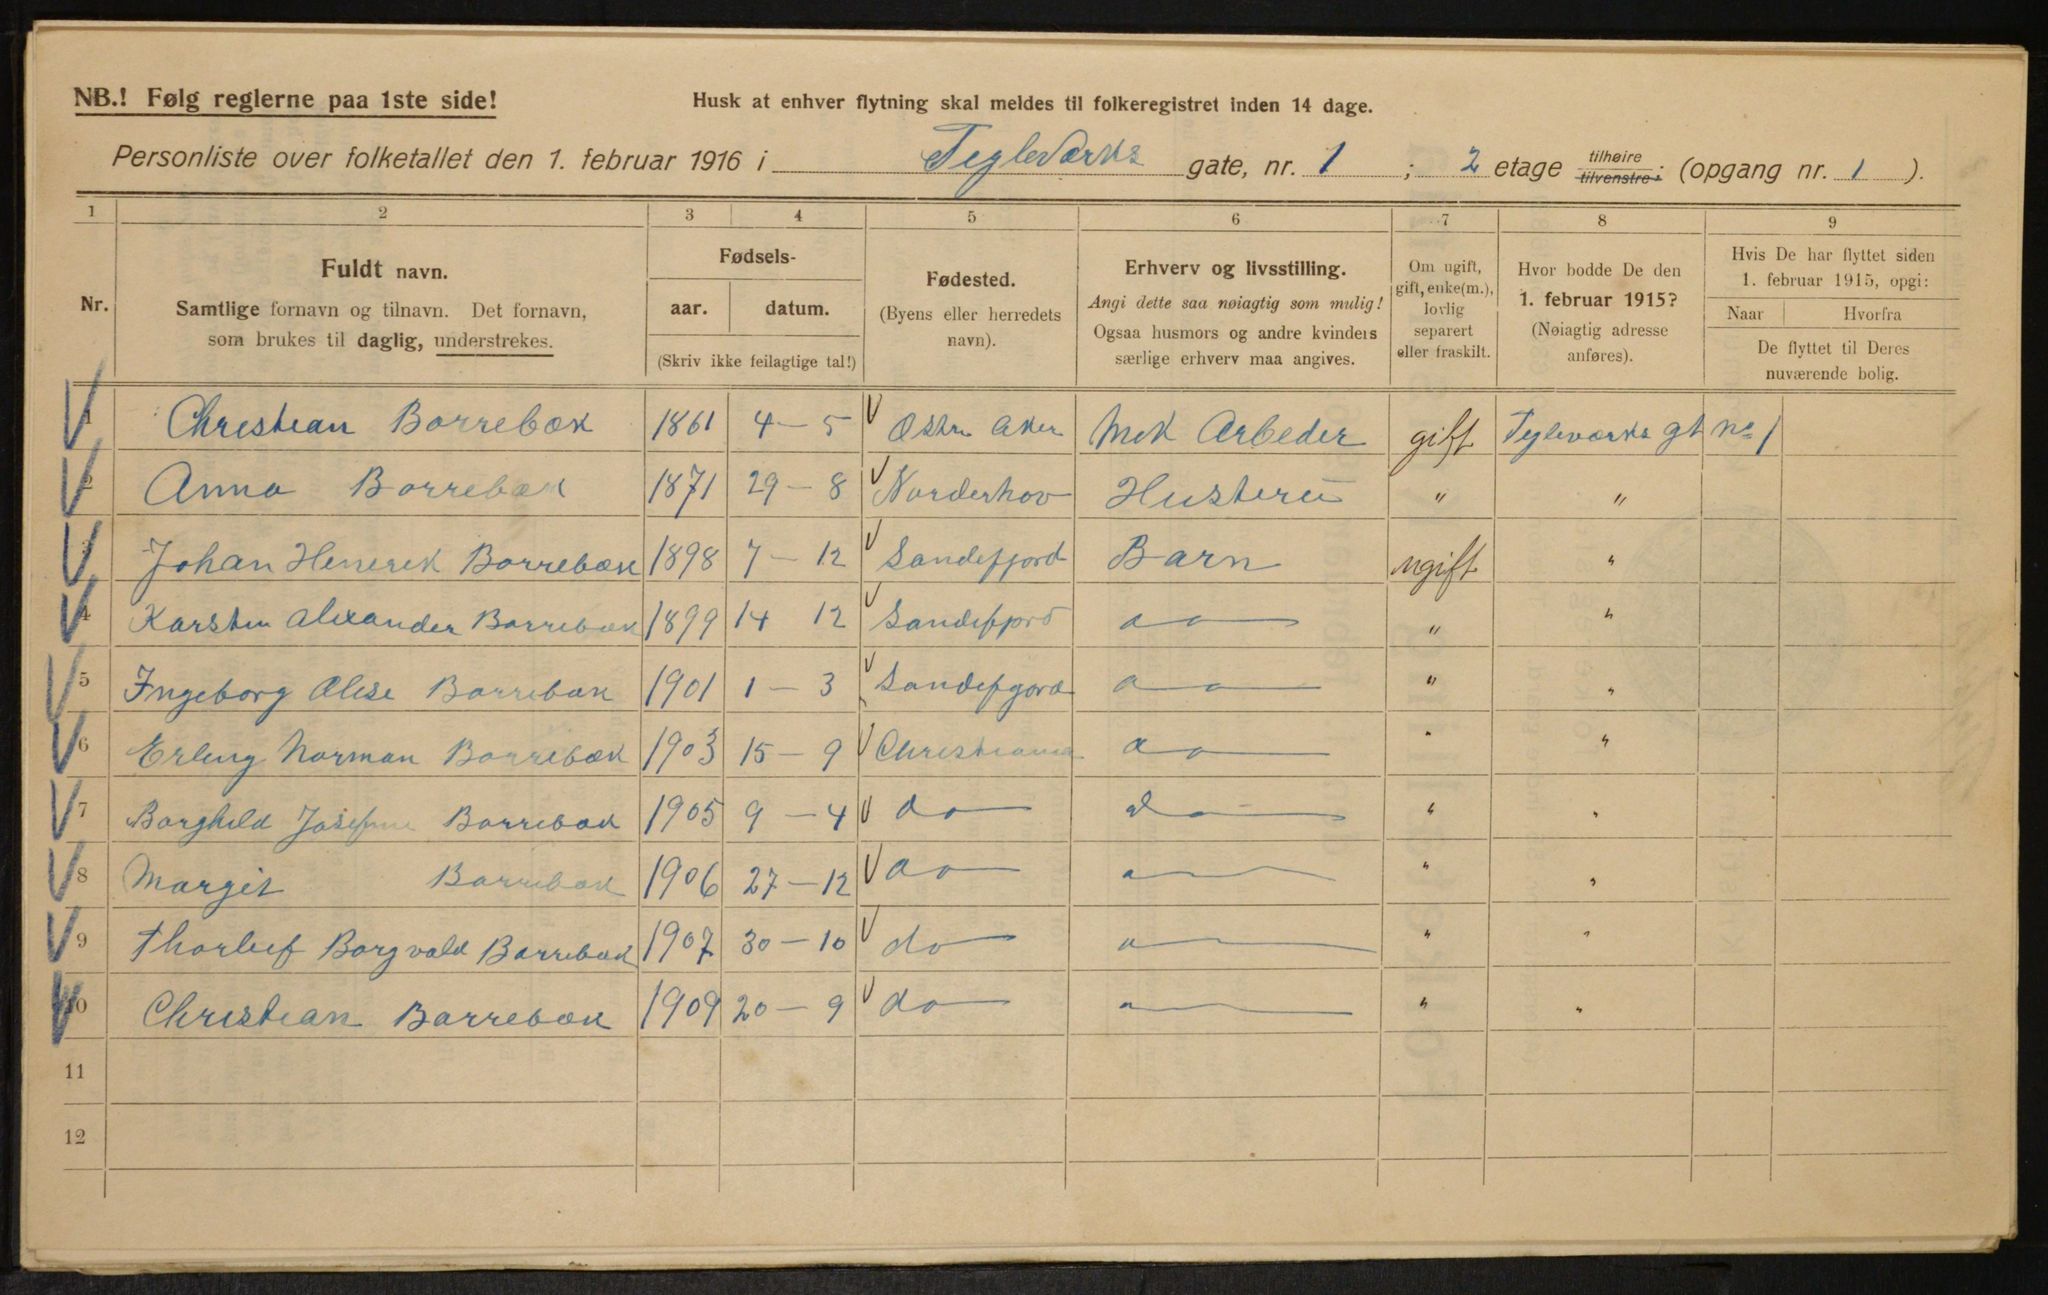 NB.! Følg reglerne paa 1ste side!
Husk at enhver flytning skal meldes til folkeregistret inden 14 dage.
Personliste over folketallet den 1. februar 1916 i Tegleværks gate, nr. 1 ; 2 etage tilhøire tilvenstre; (opgang nr. 1 ).
1 2 3 4 5 6 7 8 9
Nr.
Fuldt navn.
Samtlige fornavn og tilnavn. Det fornavn,
som brukes til daglig, understrekes.
Fødsels-
aar. datum.
(Skriv ikke feilagtige tal!)
Fødested.
(Byens eller herredets
navn).
Erhverv og livsstilling.
Angi dette saa nøiagtig som mulig!
Ogsaa husmors og andre kvinders
særlige erhverv maa angives.
Om ugift,
gift, enke(m.),
lovlig
separert
eller fraskilt.
Hvor bodde De den
1. februar 1915?
(Nøiagtig adresse
anføres).
Hvis De har flyttet siden
1. februar 1915, opgi:
Naar Hvorfra
De flyttet til Deres
nuværende bolig.
1 Christian Borrebæk 1861 4 – 5 Østre Aker Mek Arbeder gift Tegleværks gt No 1
2 Anna Borrebæk 1871 29 – 8 Norderhov Husteru " "
3 Johan Henerek Borrebæk 1898 7 – 12 Sandefjord Barn ugift "
4 Karsten Alexander Borrebæk 1899 14 12 Sandefjord do " "
5 Ingeborg Alese Borrebæk 1901 1 – 3 Sandefjord do " "
6 Erling Norman Borrebæk 1903 15 – 9 Christiania do " "
7 Borghild Josefine Borrebæk 1905 9 – 4 do do " "
8 Margit Borrebæk 1906 27 – 12 do " "
9 Thorleif Borgvald Borrebæk 1907 30 – 10 do " "
10 Christian Borrebæk 1909 20 – 9 do " "
11
12